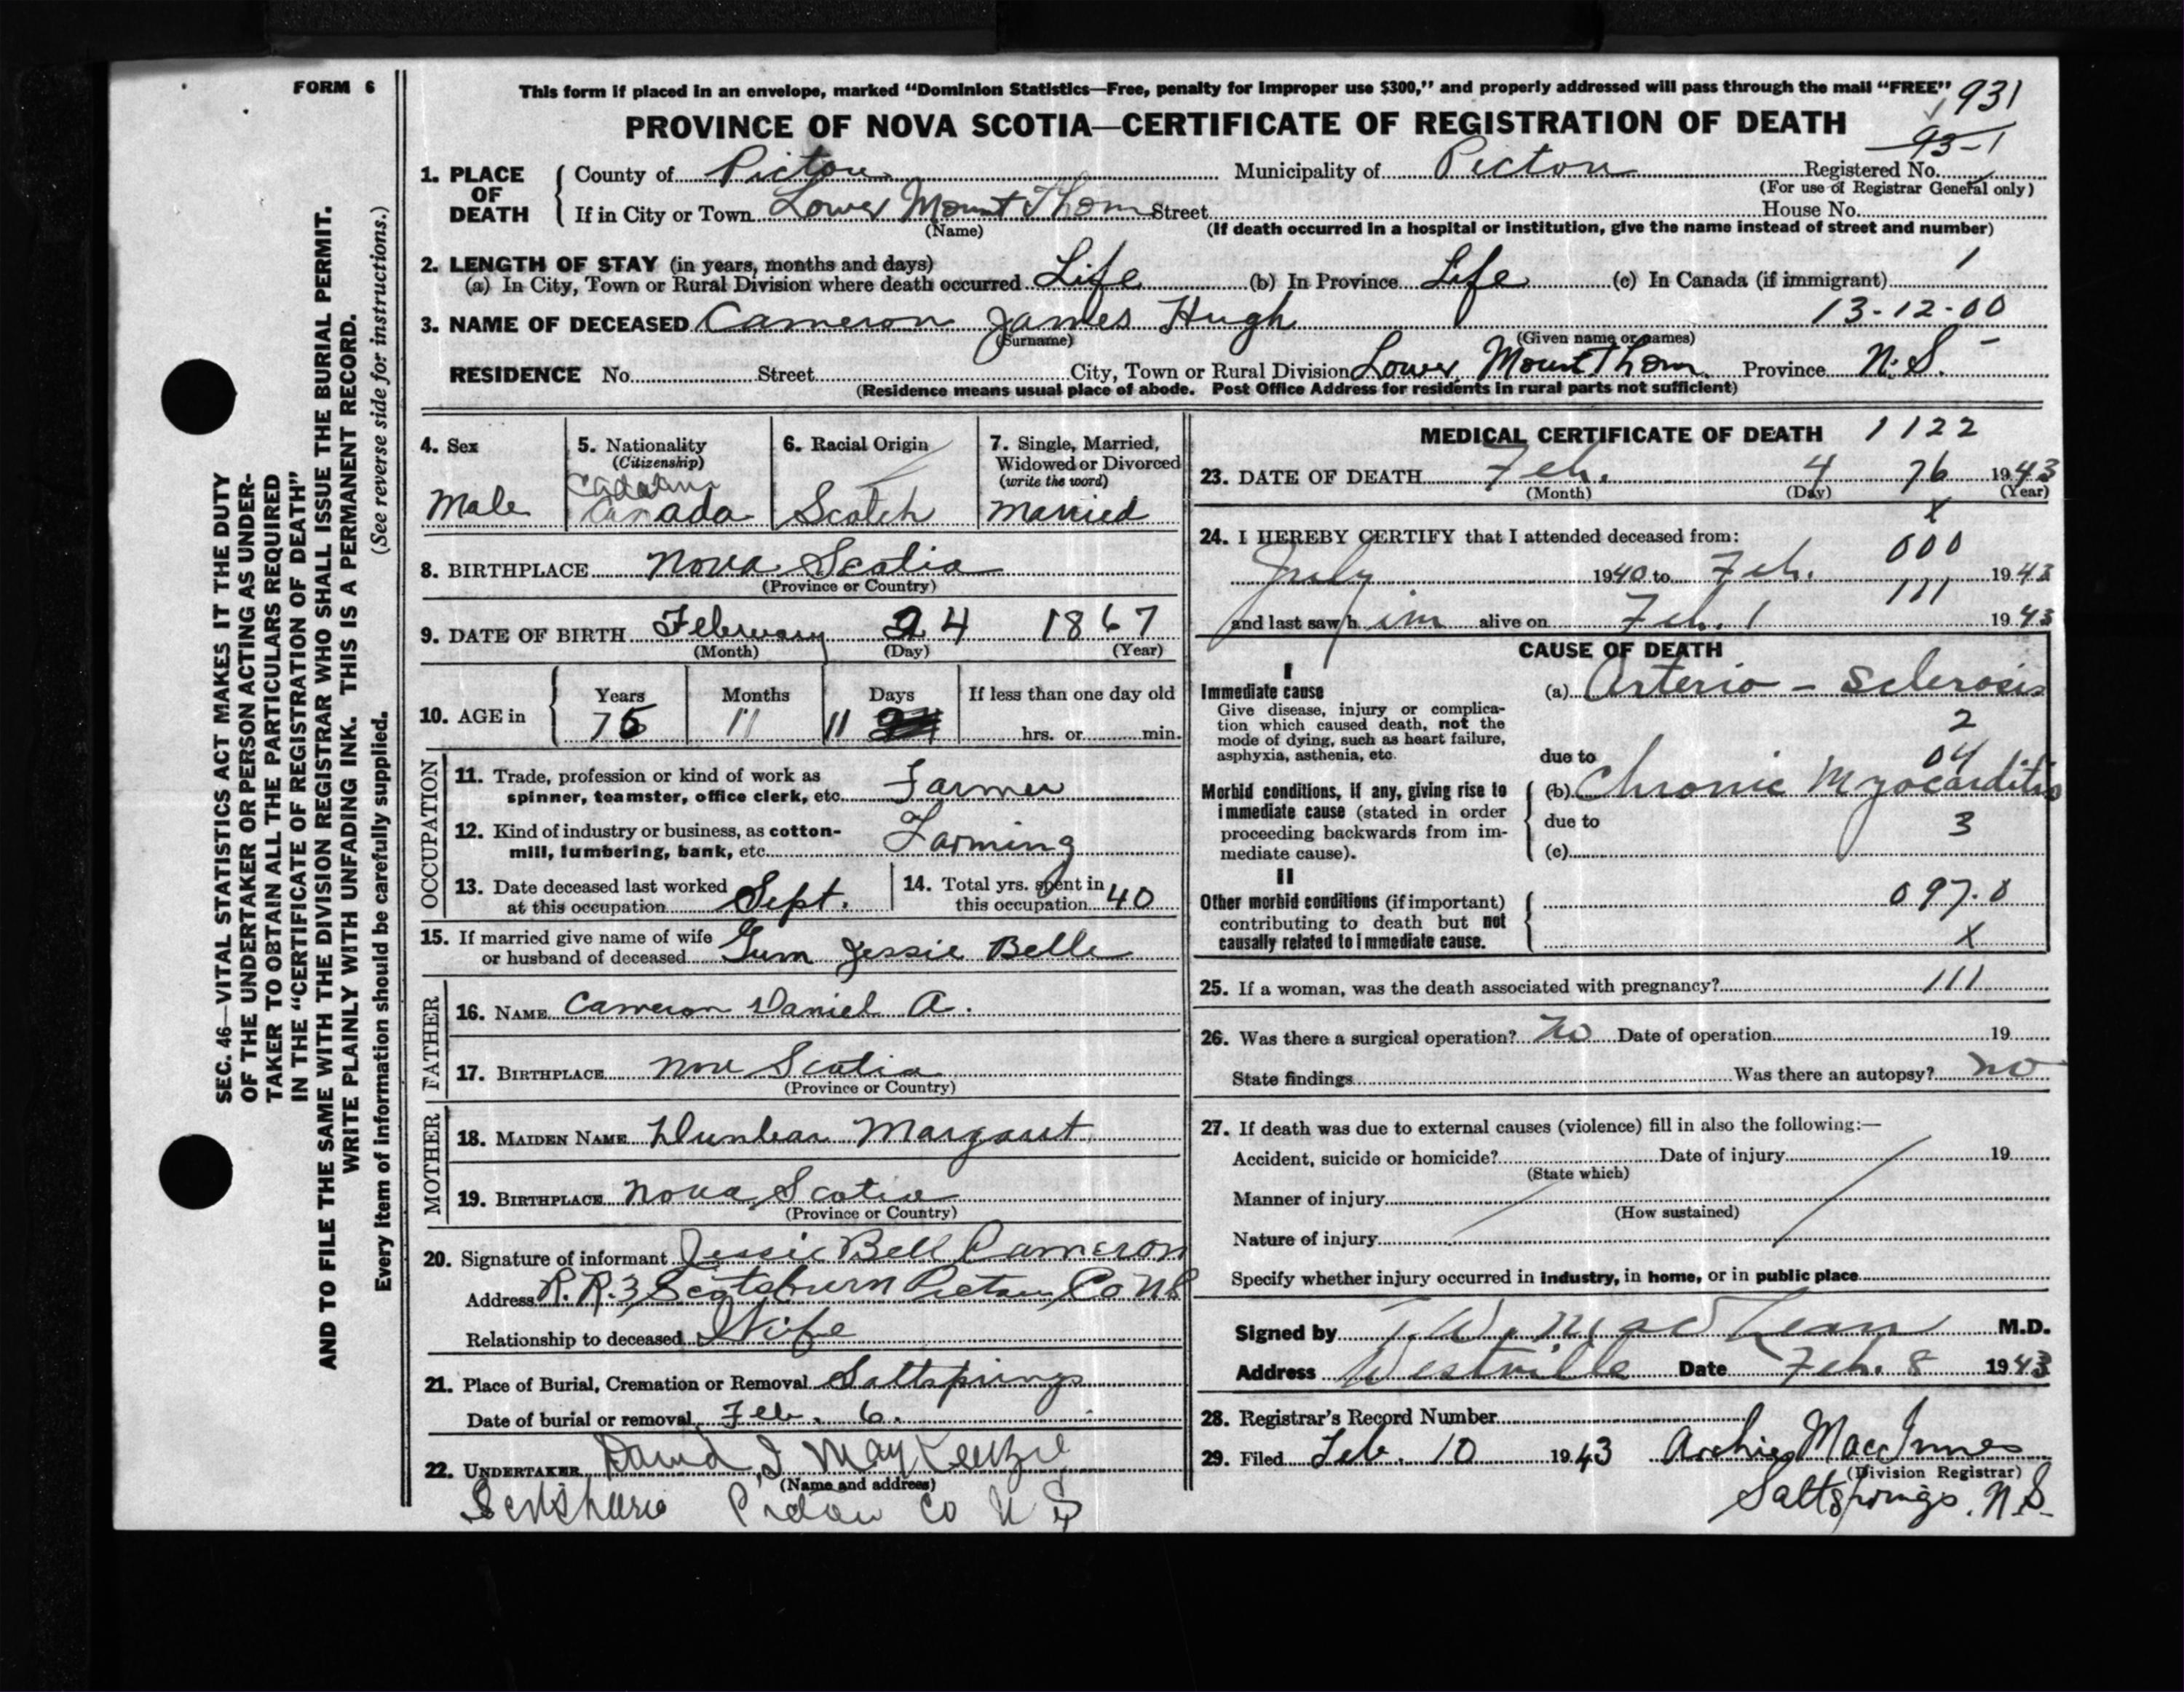 FORM 6
This form if placed in an envelope, marked "Dominion Statistics—Free, penalty for improper use $300," and properly addressed will pass through the mail "FREE"
931
PROVINCE OF NOVA SCOTIA—CERTIFICATE OF REGISTRATION OF DEATH
1. PLACE OF DEATH
County of Pictou Municipality of Pictou Registered No. 93-1
(For use of Registrar General only)
If in City or Town Lower Mount Thom Street House No.
(Name) (If death occurred in a hospital or institution, give the name instead of street and number)
2. LENGTH OF STAY (in years, months and days) 1
(a) In City, Town or Rural Division where death occurred Life (b) In Province Life (c) In Canada (if immigrant)
3. NAME OF DECEASED Cameron James Hugh 13-12-00
(Surname) (Given name or names)
RESIDENCE No. Street City, Town or Rural Division Lower Mount Thom Province N.S.
(Residence means usual place of abode. Post Office Address for residents in rural parts not sufficient)
4. Sex
Male
5. Nationality
(Citizenship)
Canada
6. Racial Origin
Scotch
7. Single, Married, Widowed or Divorced
(write the word)
Married
8. BIRTHPLACE Nova Scotia
(Province or Country)
9. DATE OF BIRTH February 24 1867
(Month) (Day) (Year)
10. AGE in
Years Months Days If less than one day old
75 11 11 hrs. or min.
OCCUPATION
11. Trade, profession or kind of work as
spinner, teamster, office clerk, etc. Farmer
12. Kind of industry or business, as cotton-
mill, lumbering, bank, etc. Farming
13. Date deceased last worked
at this occupation Sept.
14. Total yrs. spent in
this occupation 40
15. If married give name of wife
or husband of deceased Gum Jessie Belle
FATHER
16. NAME Cameron Daniel A.
17. BIRTHPLACE Nova Scotia
(Province or Country)
MOTHER
18. MAIDEN NAME Dunbar Margaret
19. BIRTHPLACE Nova Scotia
(Province or Country)
20. Signature of informant Jessie Bell Cameron
Address R.R.3, Scotsburn Pictou Co NS
Relationship to deceased Wife
21. Place of Burial, Cremation or Removal Saltsprings
Date of burial or removal Feb. 6.
22. UNDERTAKER David J MacKenzie
(Name and address)
Scotsburn Pictou Co N S
MEDICAL CERTIFICATE OF DEATH 1122
23. DATE OF DEATH Feb. 4 76 1943
(Month) (Day) (Year)
x
24. I HEREBY CERTIFY that I attended deceased from:
000
July 1940 to Feb. 1943
111
and last saw him alive on Feb. 1 1943
CAUSE OF DEATH
I
Immediate cause
Give disease, injury or complica-
tion which caused death, not the
mode of dying, such as heart failure,
asphyxia, asthenia, etc.
(a) Arterio-Sclerosis
2
due to 04
Morbid conditions, if any, giving rise to
immediate cause (stated in order
proceeding backwards from im-
mediate cause).
(b) Chronic Myocarditis
due to 3
(c)
II
Other morbid conditions (if important)
contributing to death but not
causally related to immediate cause.
097.0
X
25. If a woman, was the death associated with pregnancy? 111
26. Was there a surgical operation? No Date of operation 19
State findings Was there an autopsy? No
27. If death was due to external causes (violence) fill in also the following:—
Accident, suicide or homicide? Date of injury 19
(State which)
Manner of injury
(How sustained)
Nature of injury
Specify whether injury occurred in industry, in home, or in public place
Signed by M.D.
Address Westville Date Feb. 8 1943
28. Registrar's Record Number
29. Filed Feb. 10 1943 Archie MacInnes
(Division Registrar)
Saltsprings, N.S.
SEC. 46—VITAL STATISTICS ACT MAKES IT THE DUTY
OF THE UNDERTAKER OR PERSON ACTING AS UNDER-
TAKER TO OBTAIN ALL THE PARTICULARS REQUIRED
IN THE "CERTIFICATE OF REGISTRATION OF DEATH"
AND TO FILE THE SAME WITH THE DIVISION REGISTRAR WHO SHALL ISSUE THE BURIAL PERMIT.
WRITE PLAINLY WITH UNFADING INK. THIS IS A PERMANENT RECORD.
Every item of information should be carefully supplied. (See reverse side for instructions.)